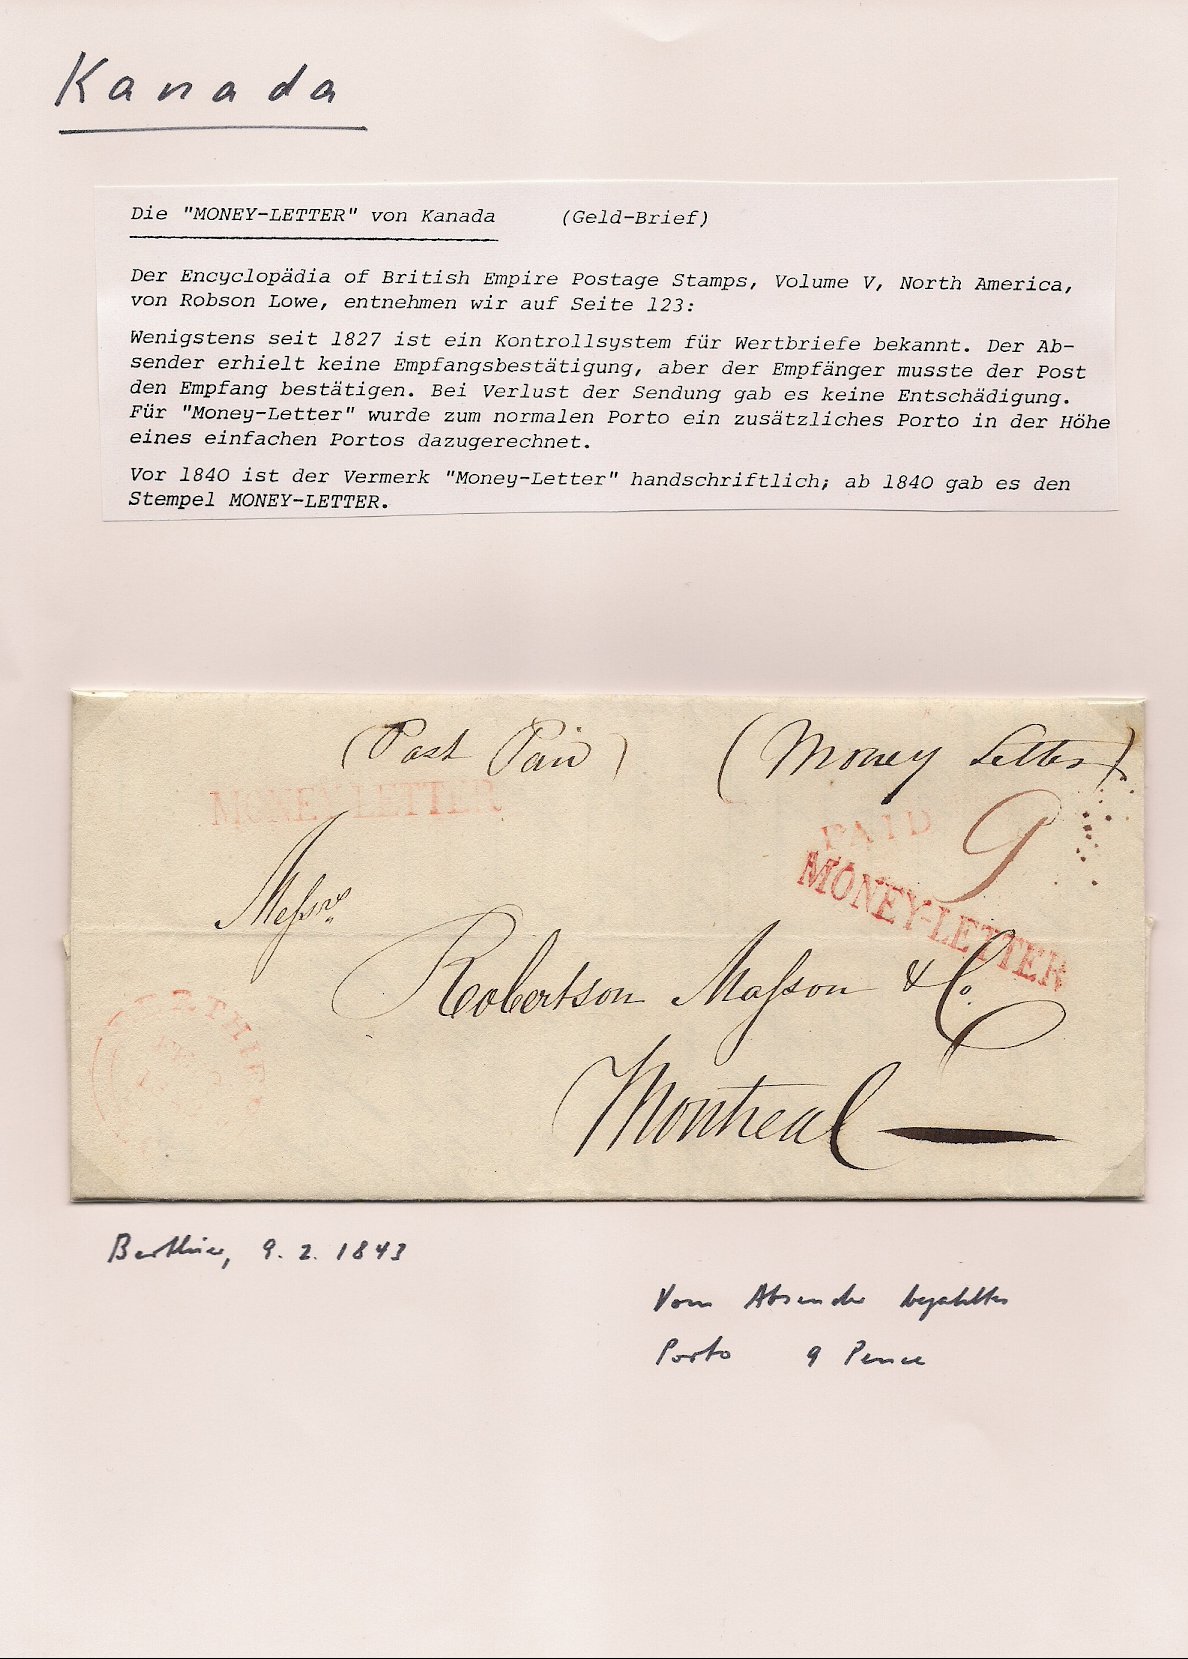 Kanada
Die "MONEY-LETTER" von Kanada (Geld-Brief)
Der Encyclopädia of British Empire Postage Stamps, Volume V, North America,
von Robson Lowe, entnehmen wir auf Seite 123:
Wenigstens seit 1827 ist ein Kontrollsystem für Wertbriefe bekannt. Der Ab-
sender erhielt keine Empfangsbestätigung, aber der Empfänger musste der Post
den Empfang bestätigen. Bei Verlust der Sendung gab es keine Entschädigung.
Für "Money-Letter" wurde zum normalen Porto ein zusätzliches Porto in der Höhe
eines einfachen Portos dazugerechnet.
Vor 1840 ist der Vermerk "Money-Letter" handschriftlich; ab 1840 gab es den
Stempel MONEY-LETTER.
(Post Paid) (Money Letter)
MONEY-LETTER
PAID 9
MONEY-LETTER
Messrs
Robertson Masson & Co.
Montreal
BERTHIER
Berthier, 9. 2. 1843
Vom Absender bezahltes
Porto 9 Pence